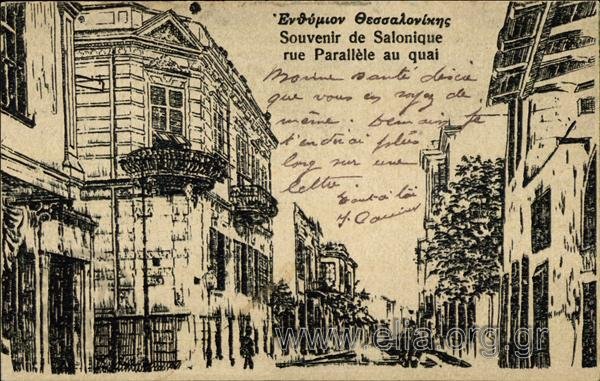 Ἐνθύμιον Θεσσαλονίκης
Souvenir de Salonique
rue Parallèle au quai
santé
que vous en soyez de
même. Demain je
t'endrai plus
long sur une
lettre.
Tout à toi
www.elia.org.gr